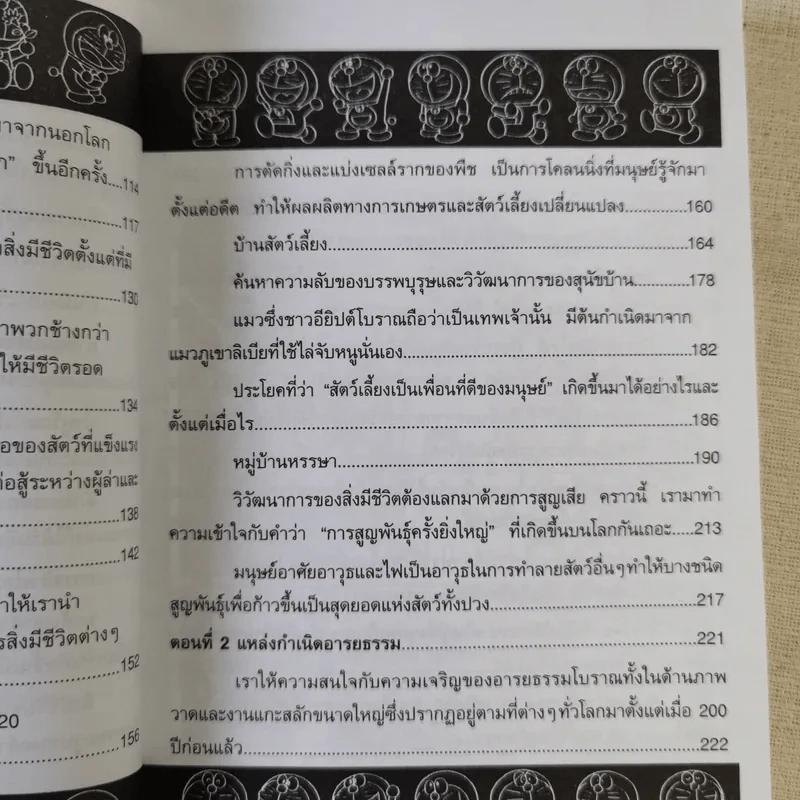 มาจากนอกโลก
ขึ้นอีกครั้ง....114
117
สิ่งมีชีวิตตั้งแต่ที่มี
130
าพวกช้างกว่า
ให้มีชีวิตรอด
134
อของสัตว์ที่แข็งแรง
ต่อสู้ระหว่างผู้ล่าและ
138
142
าให้เรานำ
รสิ่งมีชีวิตต่างๆ
152
20
156
การตัดกิ่งและแบ่งเซลล์รากของพืช เป็นการโคลนนิ่งที่มนุษย์รู้จักมา
ตั้งแต่อดีต ทำให้ผลผลิตทางการเกษตรและสัตว์เลี้ยงเปลี่ยนแปลง..............160
บ้านสัตว์เลี้ยง..............164
ค้นหาความลับของบรรพบุรุษและวิวัฒนาการของสุนัขบ้าน..............178
แมวซึ่งชาวอียิปต์โบราณถือว่าเป็นเทพเจ้านั้น มีต้นกำเนิดมาจาก
แมวภูเขาลิเบียที่ใช้ไล่จับหนูนั่นเอง..............182
ประโยคที่ว่า “สัตว์เลี้ยงเป็นเพื่อนที่ดีของมนุษย์” เกิดขึ้นมาได้อย่างไรและ
ตั้งแต่เมื่อไร..............186
หมู่บ้านหรรษา..............190
วิวัฒนาการของสิ่งมีชีวิตต้องแลกมาด้วยการสูญเสีย คราวนี้ เรามาทำ
ความเข้าใจกับคำว่า “การสูญพันธุ์ครั้งยิ่งใหญ่” ที่เกิดขึ้นบนโลกกันเถอะ.....213
มนุษย์อาศัยอาวุธและไฟเป็นอาวุธในการทำลายสัตว์อื่นๆทำให้บางชนิด
สูญพันธุ์เพื่อก้าวขึ้นเป็นสุดยอดแห่งสัตว์ทั้งปวง..............217
ตอนที่ 2 แหล่งกำเนิดอารยธรรม..............221
เราให้ความสนใจกับความเจริญของอารยธรรมโบราณทั้งในด้านภาพ
วาดและงานแกะสลักขนาดใหญ่ซึ่งปรากฏอยู่ตามที่ต่างๆทั่วโลกมาตั้งแต่เมื่อ 200
ปีก่อนแล้ว..............222